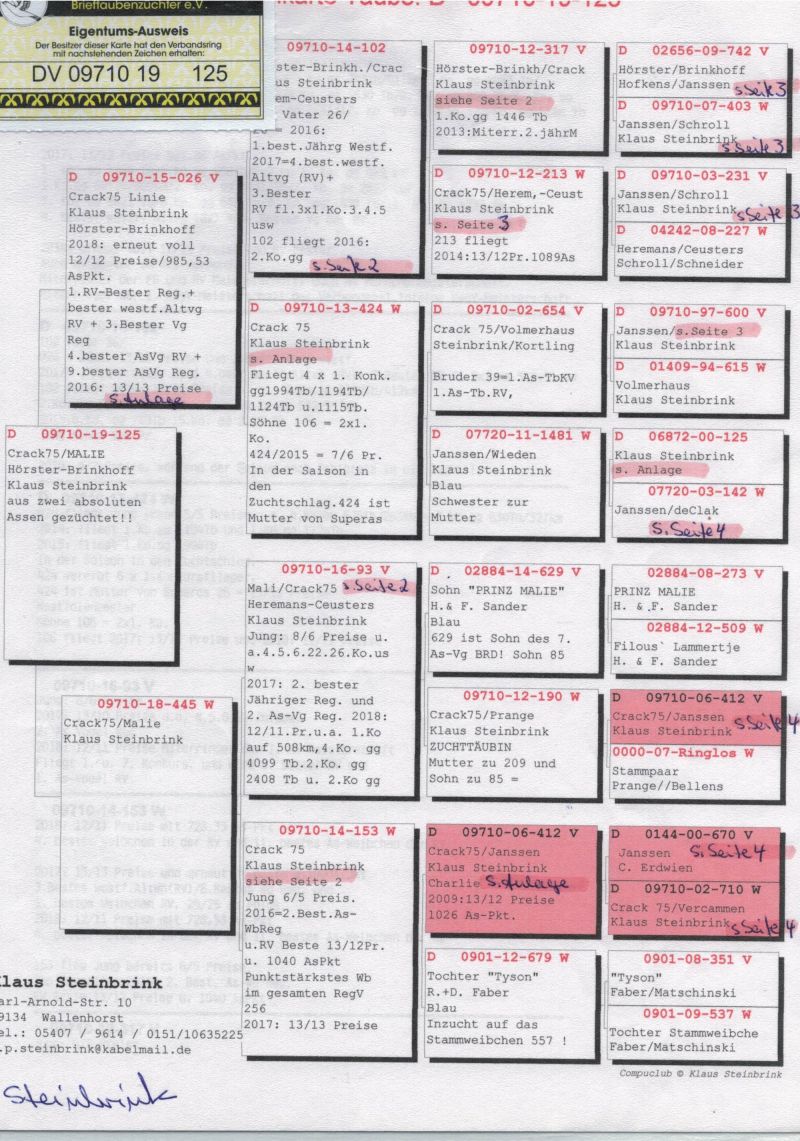 Brieftaubenzüchter e.V.
Eigentums-Ausweis
Der Besitzer dieser Karte hat den Verbandsring
mit nachstehenden Zeichen erhalten:
DV 09710 19 125
D 09710-15-026 V
Crack75 Linie
Klaus Steinbrink
Hörster-Brinkhoff
2018: erneut voll
12/12 Preise/985,53
AsPkt.
1.RV-Bester Reg.+
bester westf.Altvg
RV + 3.Bester Vg
Reg
4.bester AsVg RV +
9.bester AsVg Reg.
2016: 13/13 Preise
s. Anlage
D 09710-19-125
Crack75/MALIE
Hörster-Brinkhoff
Klaus Steinbrink
aus zwei absoluten
Assen gezüchtet!!
09710-18-445 W
Crack75/Malie
Klaus Steinbrink
09710-14-102
ster-Brinkh./Crac
us Steinbrink
em-Ceusters
Vater 26/
= 2016:
1.best.Jährg Westf.
2017=4.best.westf.
Altvg (RV)+
3.Bester
RV fl.3x1.Ko.3.4.5
usw
102 fliegt 2016:
2.Ko.gg
s. Seite 2
D 09710-13-424 W
Crack 75
Klaus Steinbrink
s. Anlage
Fliegt 4 x 1. Konk.
gg1994Tb/1194Tb/
1124Tb u.1115Tb.
Söhne 106 = 2x1.
Ko.
424/2015 = 7/6 Pr.
In der Saison in
den
Zuchtschlag.424 ist
Mutter von Superas
09710-16-93 V
Mali/Crack75 s Seite 2
Heremans-Ceusters
Klaus Steinbrink
Jung: 8/6 Preise u.
a.4.5.6.22.26.Ko.us
w
2017: 2. bester
Jähriger Reg. und
2. As-Vg Reg. 2018:
12/11.Pr.u.a. 1.Ko
auf 508km,4.Ko. gg
4099 Tb.2.Ko. gg
2408 Tb u. 2.Ko gg
09710-14-153 W
Crack 75
Klaus Steinbrink
siehe Seite 2
Jung 6/5 Preis.
2016=2.Best.As-
WbReg
u.RV Beste 13/12Pr.
u. 1040 AsPkt
Punktstärkstes Wb
im gesamten RegV
256
2017: 13/13 Preise
09710-12-317 V
Hörster-Brinkh/Crack
Klaus Steinbrink
siehe Seite 2
1.Ko.gg 1446 Tb
2013:Miterr.2.jährM
D 09710-12-213 W
Crack75/Herem,-Ceust
Klaus Steinbrink
s. Seite 3
213 fliegt
2014:13/12Pr.1089As
D 09710-02-654 V
Crack 75/Volmerhaus
Steinbrink/Kortling
Bruder 39=1.As-TbKV
1.As-Tb.RV,
D 07720-11-1481 W
Janssen/Wieden
Klaus Steinbrink
Blau
Schwester zur
Mutter
D 02884-14-629 V
Sohn "PRINZ MALIE"
H.& F. Sander
Blau
629 ist Sohn des 7.
As-Vg BRD! Sohn 85
09710-12-190 W
Crack75/Prange
Klaus Steinbrink
ZUCHTTÄUBIN
Mutter zu 209 und
Sohn zu 85 =
D 09710-06-412 V
Crack75/Janssen
Klaus Steinbrink
Charlie s. Anlage
2009:13/12 Preise
1026 As-Pkt.
D 0901-12-679 W
Tochter "Tyson"
R.+D. Faber
Blau
Inzucht auf das
Stammweibchen 557 !
D 02656-09-742 V
Hörster/Brinkhoff
Hofkens/Janssen s. Seite 3
D 09710-07-403 W
Janssen/Schroll
Klaus Steinbrink s. Seite 3
D 09710-03-231 V
Janssen/Schroll
Klaus Steinbrink s Seite 3
D 04242-08-227 W
Heremans/Ceusters
Schroll/Schneider
D 09710-97-600 V
Janssen/s.Seite 3
Klaus Steinbrink
D 01409-94-615 W
Volmerhaus
Klaus Steinbrink
D 06872-00-125
Klaus Steinbrink
s. Anlage
07720-03-142 W
Janssen/deClak
s. Seite 4
02884-08-273 V
PRINZ MALIE
H. & F. Sander
02884-12-509 W
Filous` Lammertje
H. & F. Sander
D 09710-06-412 V
Crack75/Janssen
Klaus Steinbrink s Seite 4
0000-07-Ringlos W
Stammpaar
Prange//Bellens
D 0144-00-670 V
Janssen s. Seite 4
C. Erdwien
D 09710-02-710 W
Crack 75/Vercammen
Klaus Steinbrink s Seite 4
0901-08-351 V
"Tyson"
Faber/Matschinski
0901-09-537 W
Tochter Stammweibche
Faber/Matschinski
Compuclub © Klaus Steinbrink
Klaus Steinbrink
arl-Arnold-Str. 10
9134 Wallenhorst
el.: 05407 / 9614 / 0151/10635225
.p.steinbrink@kabelmail.de
Steinbrink